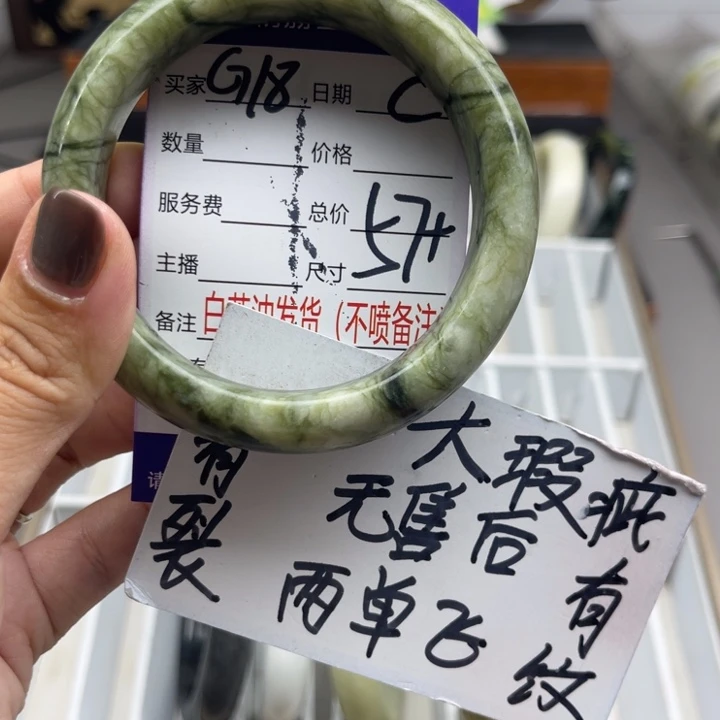 买家 G18 日期 C
数量 价格
服务费 总价 57+
主播 尺寸
备注 白菜油发货(不喷备注)
大瑕疵
有纹
有裂
无售后
两单飞